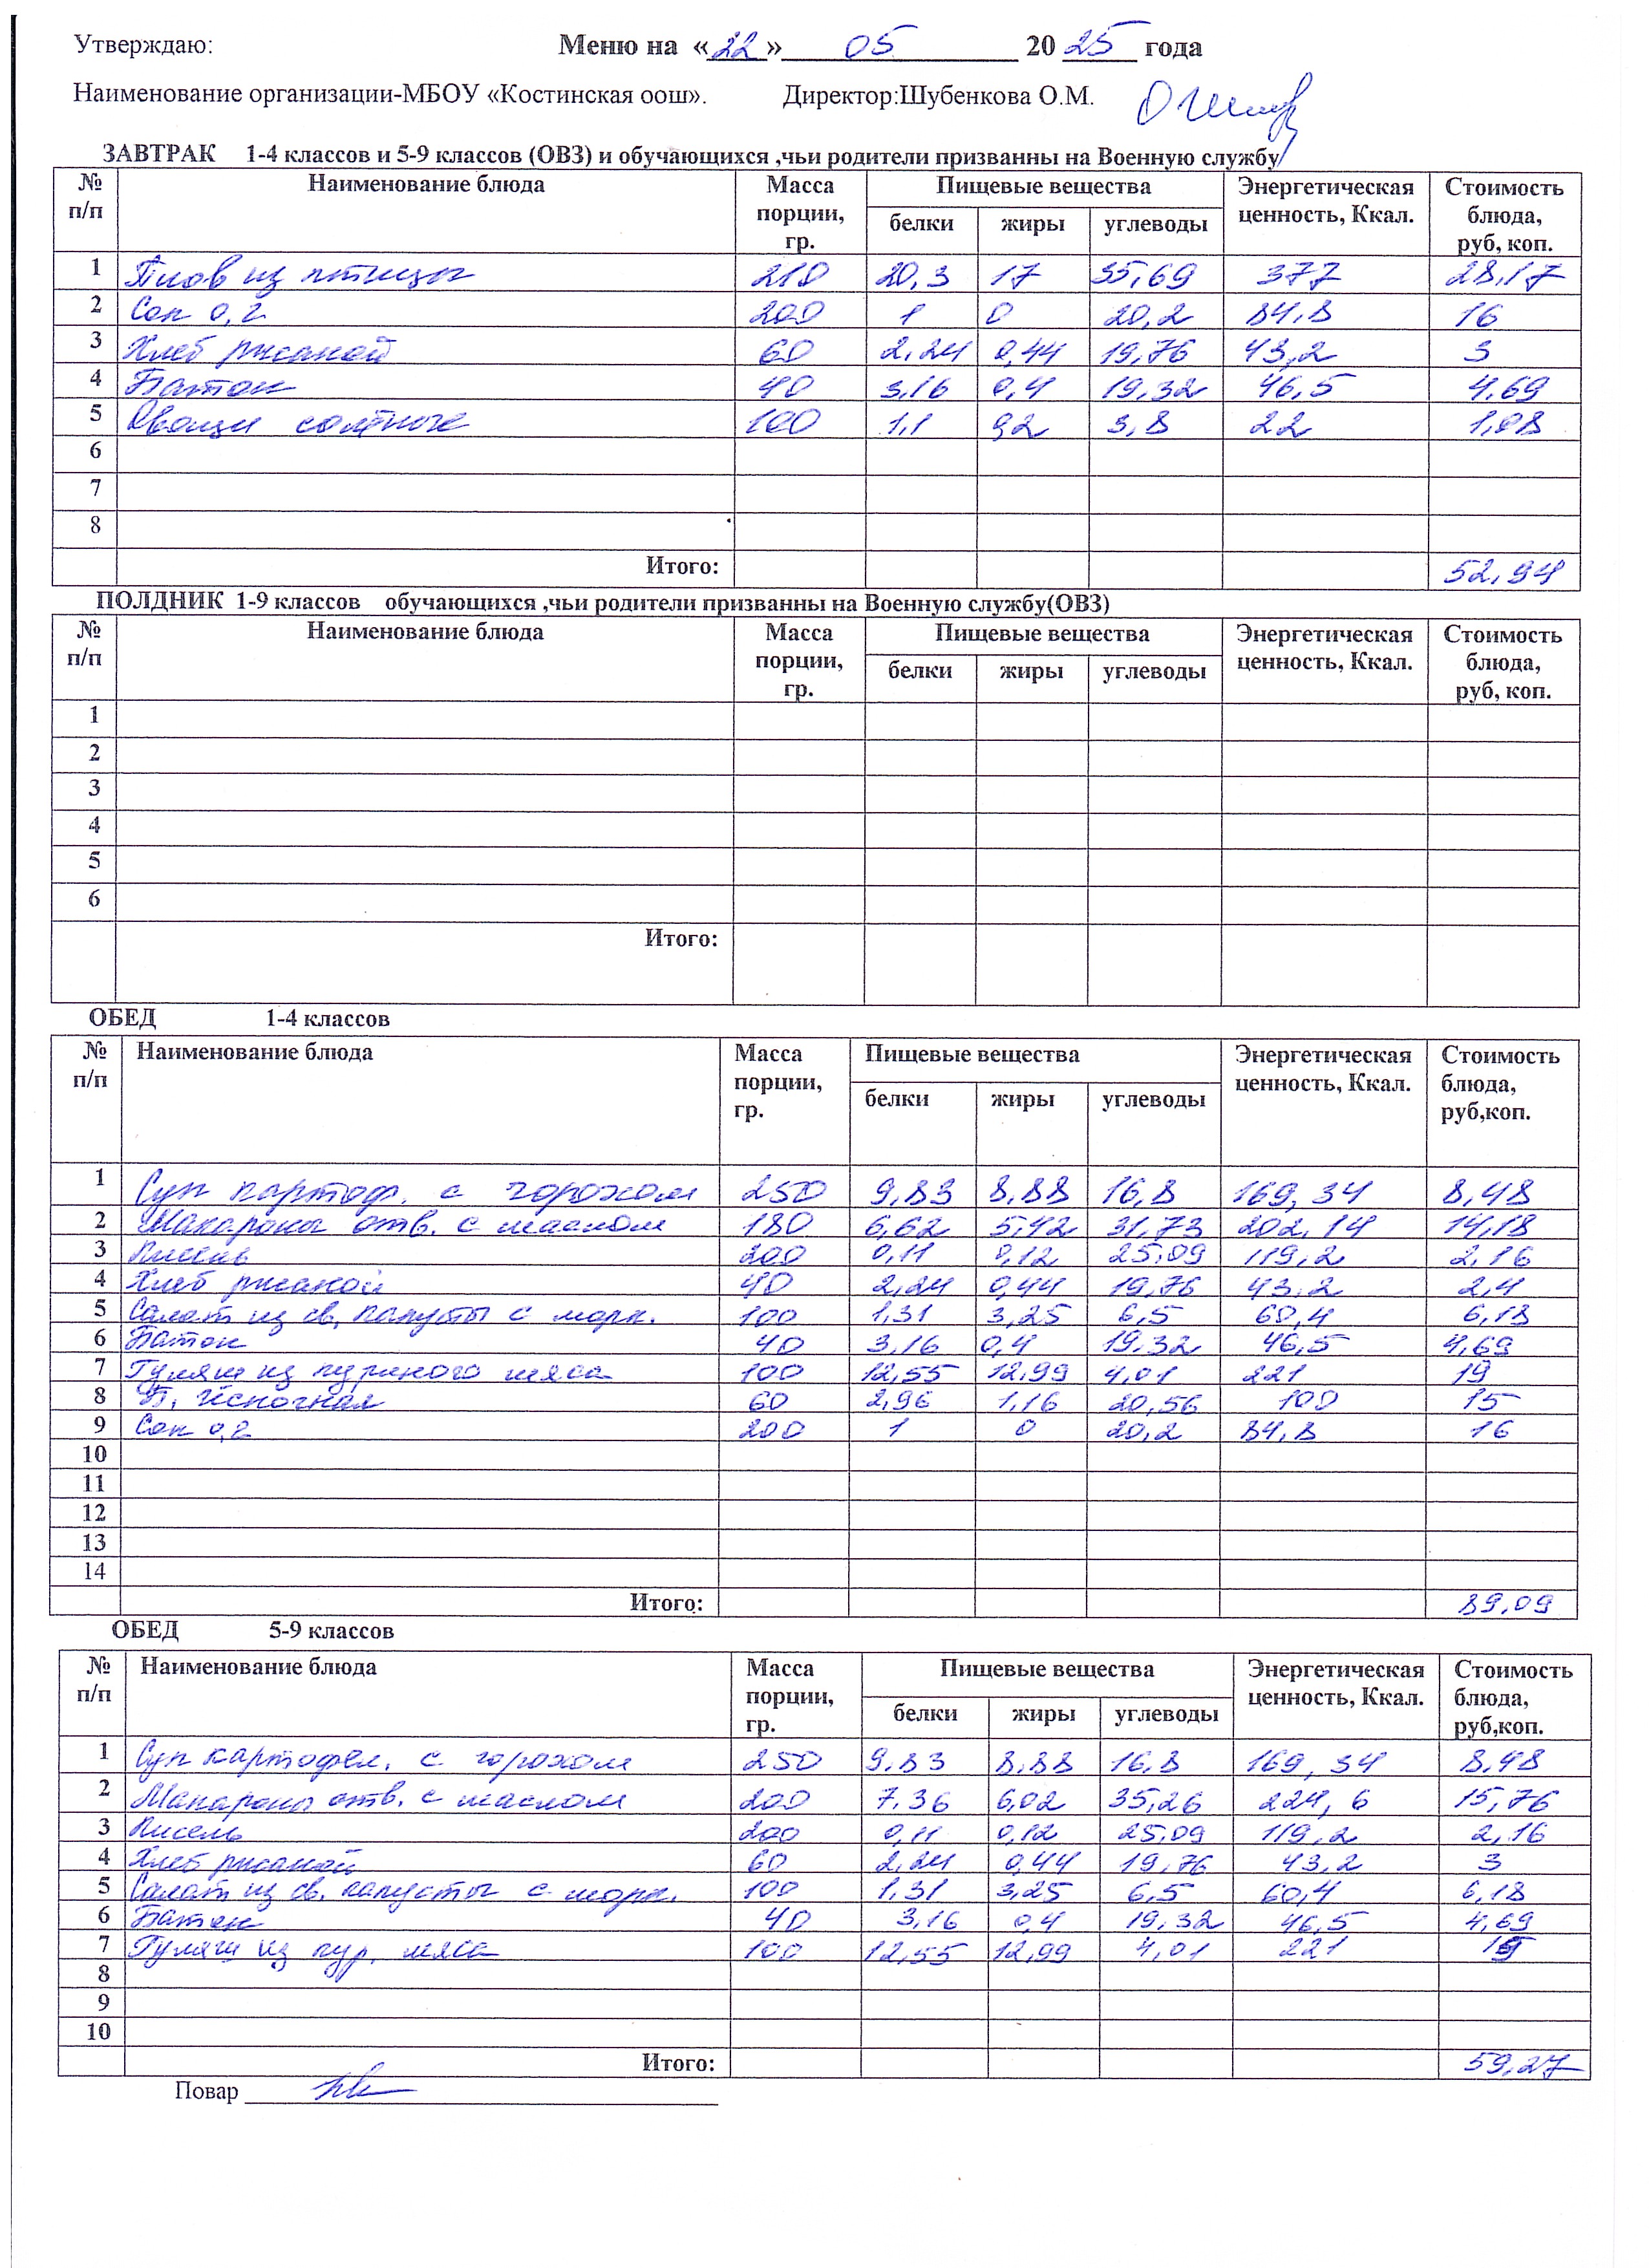 Утверждаю: Меню на «22» 05 2025 года
Наименование организации-МБОУ «Костинская оош». Директор:Шубенкова О.М.
ЗАВТРАК 1-4 классов и 5-9 классов (ОВЗ) и обучающихся ,чьи родители призванны на Военную службу
№ п/п Наименование блюда Масса порции, гр. Пищевые вещества Энергетическая ценность, Ккал. Стоимость блюда, руб, коп.
белки жиры углеводы
1 Плов из птицы 210 20,3 17 35,69 377 28,17
2 Сок 0,2 200 1 0 20,2 84,8 16
3 Хлеб ржаной 60 2,24 0,44 19,76 43,2 3
4 Батон 40 3,16 0,4 19,32 46,5 4,69
5 Овощи соленые 100 1,1 0,2 3,8 22 1,08
6
7
8
Итого: 52,94
ПОЛДНИК 1-9 классов обучающихся ,чьи родители призванны на Военную службу(ОВЗ)
№ п/п Наименование блюда Масса порции, гр. Пищевые вещества Энергетическая ценность, Ккал. Стоимость блюда, руб, коп.
белки жиры углеводы
1
2
3
4
5
6
Итого:
ОБЕД 1-4 классов
№ п/п Наименование блюда Масса порции, гр. Пищевые вещества Энергетическая ценность, Ккал. Стоимость блюда, руб,коп.
белки жиры углеводы
1 Суп картоф. с горохом 250 9,83 8,88 16,8 169,34 8,48
2 Макароны отв. с маслом 180 6,62 5,42 31,73 202,14 14,18
3 Кисель 200 0,11 0,12 25,09 119,2 2,16
4 Хлеб ржаной 40 2,24 0,44 19,76 43,2 2,4
5 Салат из св. капусты с морк. 100 1,31 3,25 6,5 60,4 6,18
6 Батон 40 3,16 0,4 19,32 46,5 4,69
7 Гуляш из куриного мяса 100 12,55 12,99 4,01 221 19
8 Б. чесночная 60 2,96 1,16 20,56 100 15
9 Сок 0,2 200 1 0 20,2 84,8 16
10
11
12
13
14
Итого: 89,09
ОБЕД 5-9 классов
№ п/п Наименование блюда Масса порции, гр. Пищевые вещества Энергетическая ценность, Ккал. Стоимость блюда, руб,коп.
белки жиры углеводы
1 Суп картофел. с горохом 250 9,83 8,88 16,8 169,34 8,48
2 Макароны отв. с маслом 200 7,36 6,02 35,26 224,6 15,76
3 Кисель 200 0,11 0,12 25,09 119,2 2,16
4 Хлеб ржаной 60 2,24 0,44 19,76 43,2 3
5 Салат из св. капусты с морк. 100 1,31 3,25 6,5 60,4 6,18
6 Батон 40 3,16 0,4 19,32 46,5 4,69
7 Гуляш из кур. мяса 100 12,55 12,99 4,01 221 19
8
9
10
Итого: 59,27
Повар